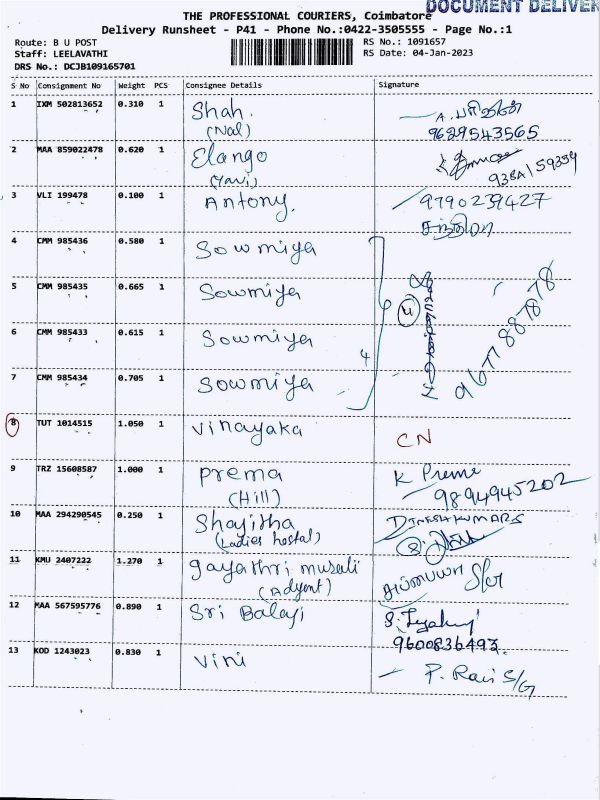 DOCUMENT DELIVER
THE PROFESSIONAL COURIERS, Coimbatore
Delivery Runsheet - P41 - Phone No.:0422-3505555 - Page No.:1
Route: B U POST
Staff: LEELAVATHI
DRS No.: DCJB109165701
RS No.: 1091657
RS Date: 04-Jan-2023
S No Consignment No Weight PCS Consignee Details Signature
1 IXM 502813652 0.310 1 Shah.
(Nal)
9629543565
2 MAA 859022478 0.620 1 Elango
3 VLI 199478 0.100 1 Antony. 9790239427
4 CMM 985436 0.580 1 Sowmiya
5 CMM 985435 0.665 1 Sowmiya
6 CMM 985433 0.615 1 Sowmiya
7 CMM 985434 0.705 1 Sowmiya
4
8 TUT 1014515 1.050 1 Vinayaka CN
9 TRZ 15608587 1.000 1 prema K Preme
(Hill) 9894945202
10 MAA 294290545 0.250 1 Shayitha DINESHKUMAR S
(Ladies hostal)
11 KMU 2407222 1.270 1 gayathri musali
12 MAA 567595776 0.890 1 Sri Balaji
9600836493
13 KOD 1243023 0.830 1 Vini P. Ravi S/G